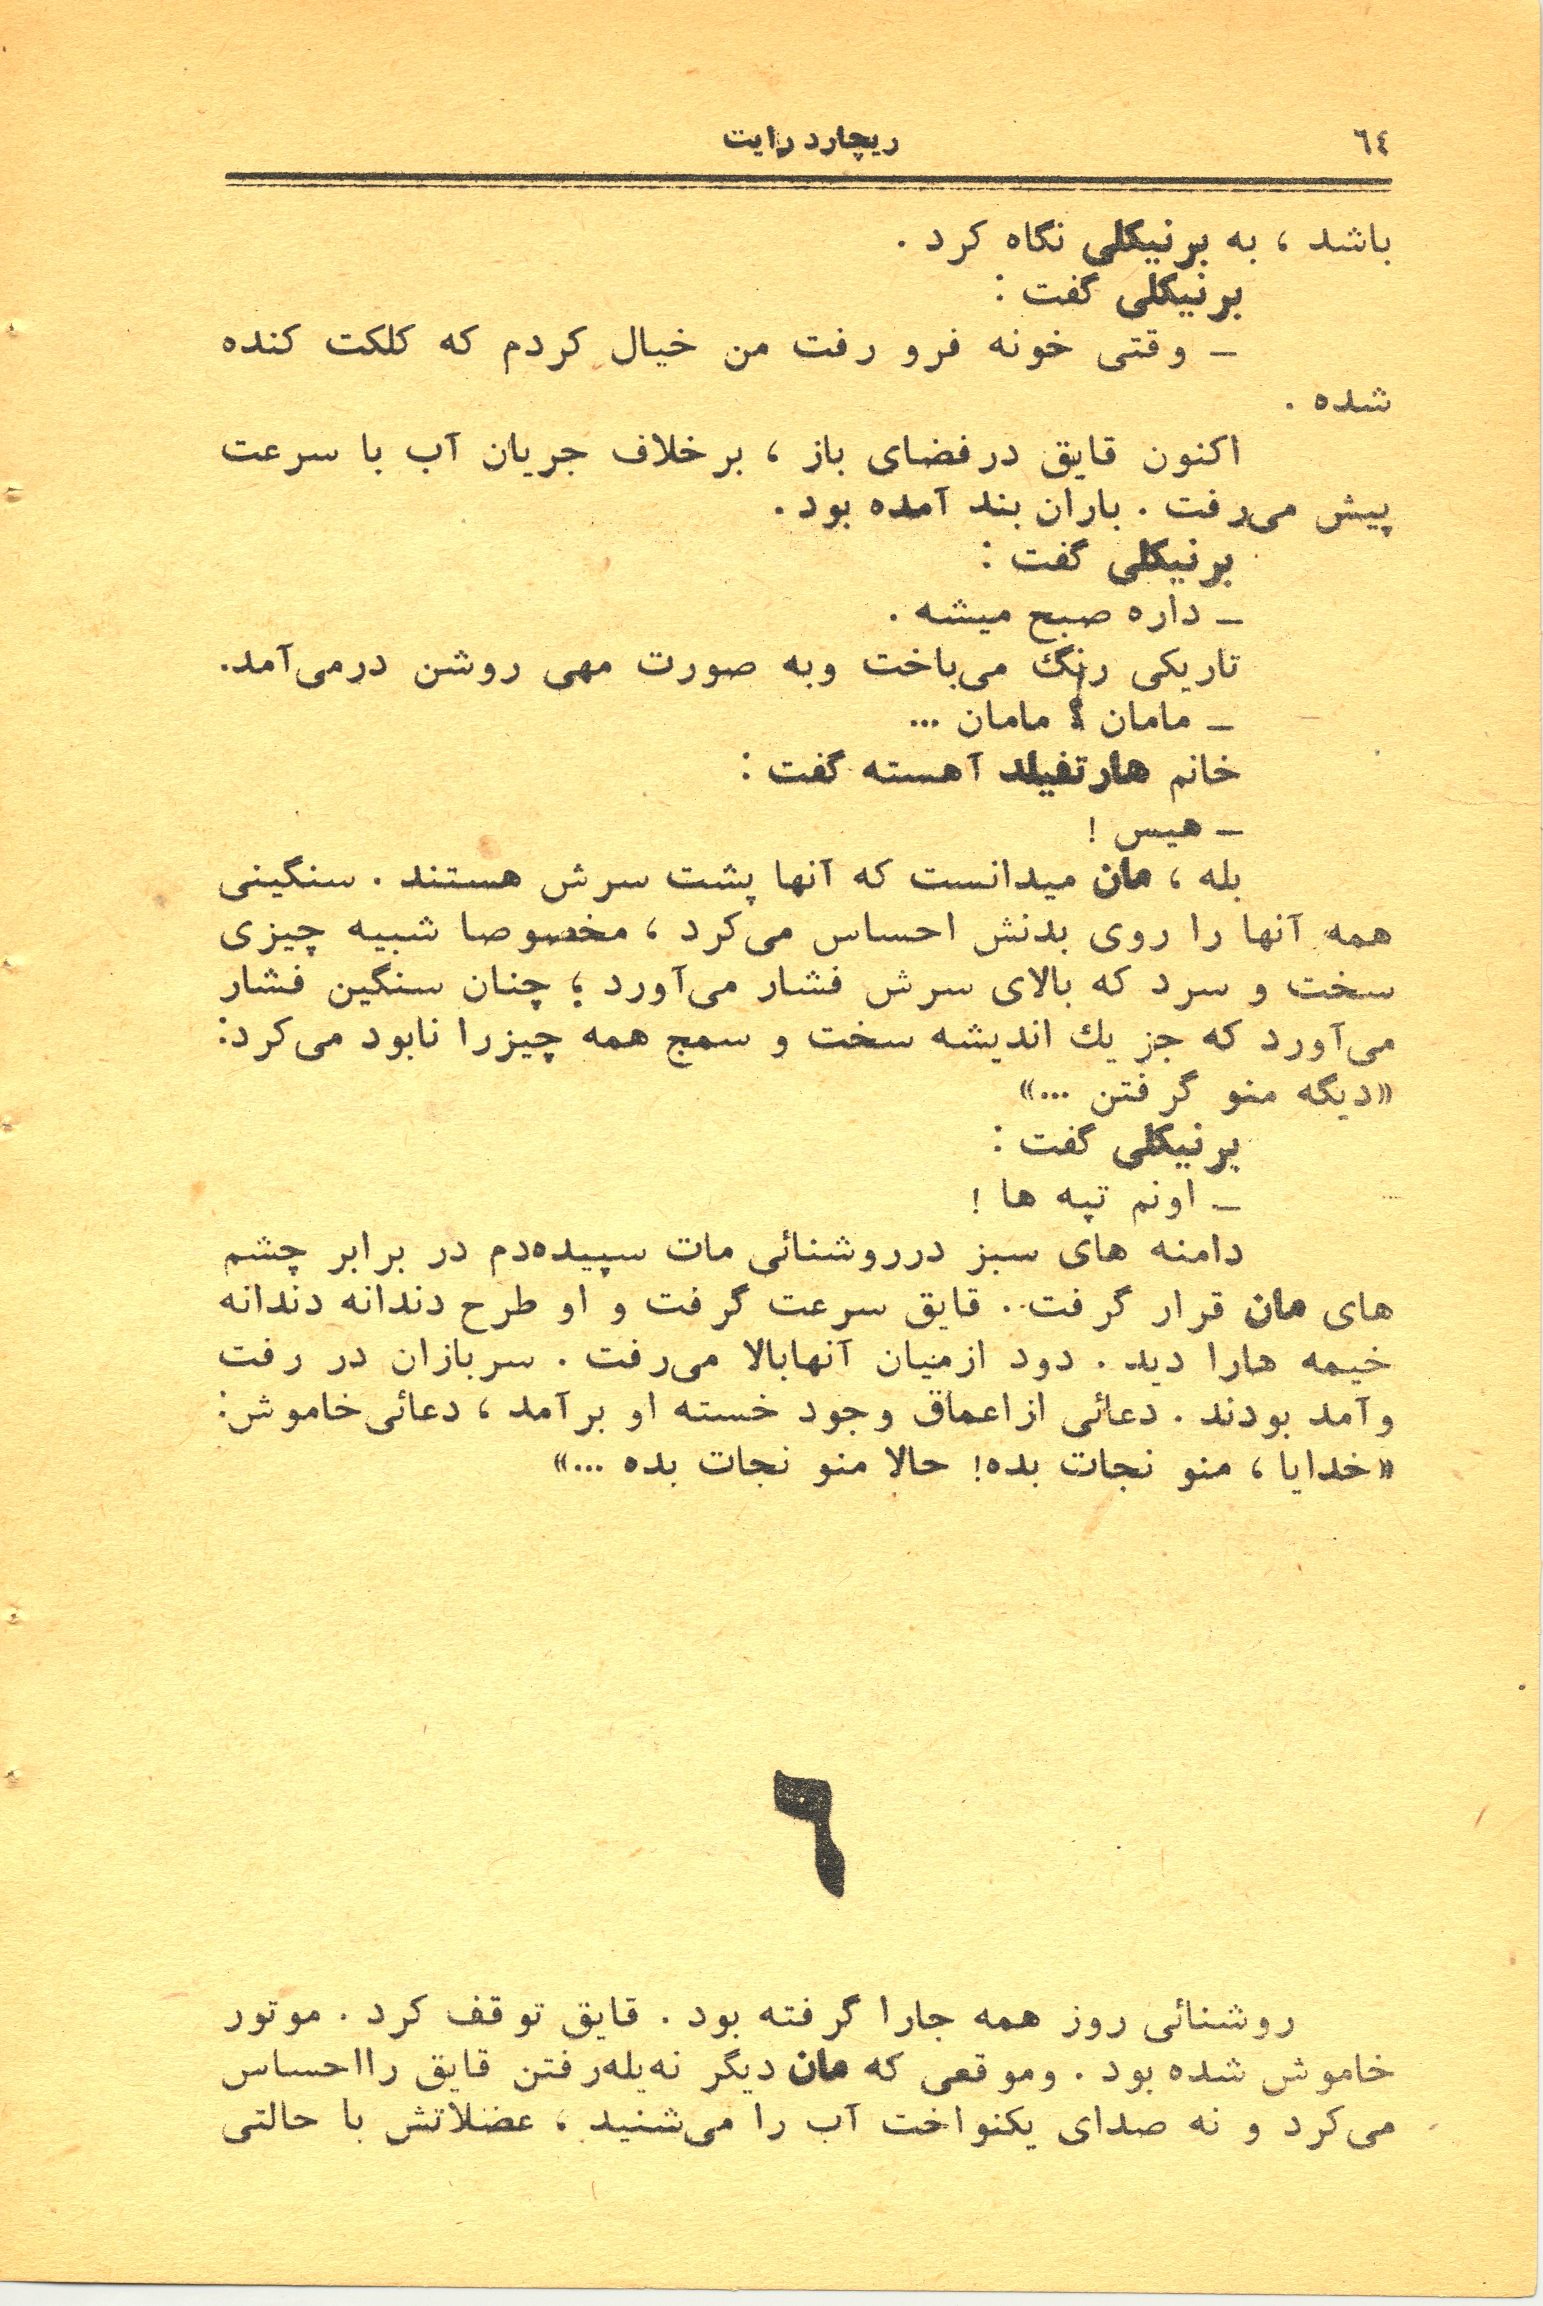 ٦٤
ریچارد رایت
باشد ، به برنیکلی نگاه کرد .
برنیکلی گفت :
ـ وقتی خونه فرو رفت من خیال کردم که کلکت کنده
شده .
اکنون قایق درفضای باز ، برخلاف جریان آب با سرعت
پیش می‌رفت . باران بند آمده بود .
برنیکلی گفت :
ـ داره صبح میشه .
تاریکی رنگ می‌باخت وبه صورت مهی روشن درمی‌آمد.
ـ مامان ؟ مامان ...
خانم هارتفیلد آهسته گفت :
ـ هیس !
بله ، مان میدانست که آنها پشت سرش هستند . سنگینی
همه آنها را روی بدنش احساس می‌کرد ، مخصوصا شبیه چیزی
سخت و سرد که بالای سرش فشار می‌آورد ؛ چنان سنگین فشار
می‌آورد که جز یك اندیشه سخت و سمج همه چیزرا نابود می‌کرد:
«دیگه منو گرفتن ...»
برنیکلی گفت :
ـ اونم تپه ها !
دامنه های سبز درروشنائی مات سپیده‌دم در برابر چشم
های مان قرار گرفت . قایق سرعت گرفت و او طرح دندانه دندانه
خیمه هارا دید . دود ازمیان آنهابالا می‌رفت . سربازان در رفت
وآمد بودند . دعائی ازاعماق وجود خسته او برآمد ، دعائی‌خاموش:
«خدایا ، منو نجات بده! حالا منو نجات بده ...»
٦
روشنائی روز همه جارا گرفته بود . قایق توقف کرد . موتور
خاموش شده بود . وموقعی که مان دیگر نه‌یله‌رفتن قایق رااحساس
می‌کرد و نه صدای یکنواخت آب را می‌شنید ، عضلاتش با حالتی